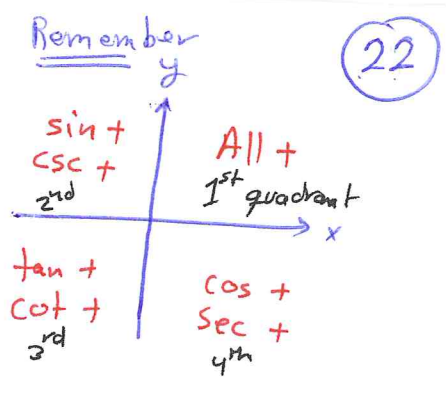 Remember
22
y
sin +
csc +
2nd
All +
1st quadrant
x
tan +
cot +
3rd
cos +
sec +
4th